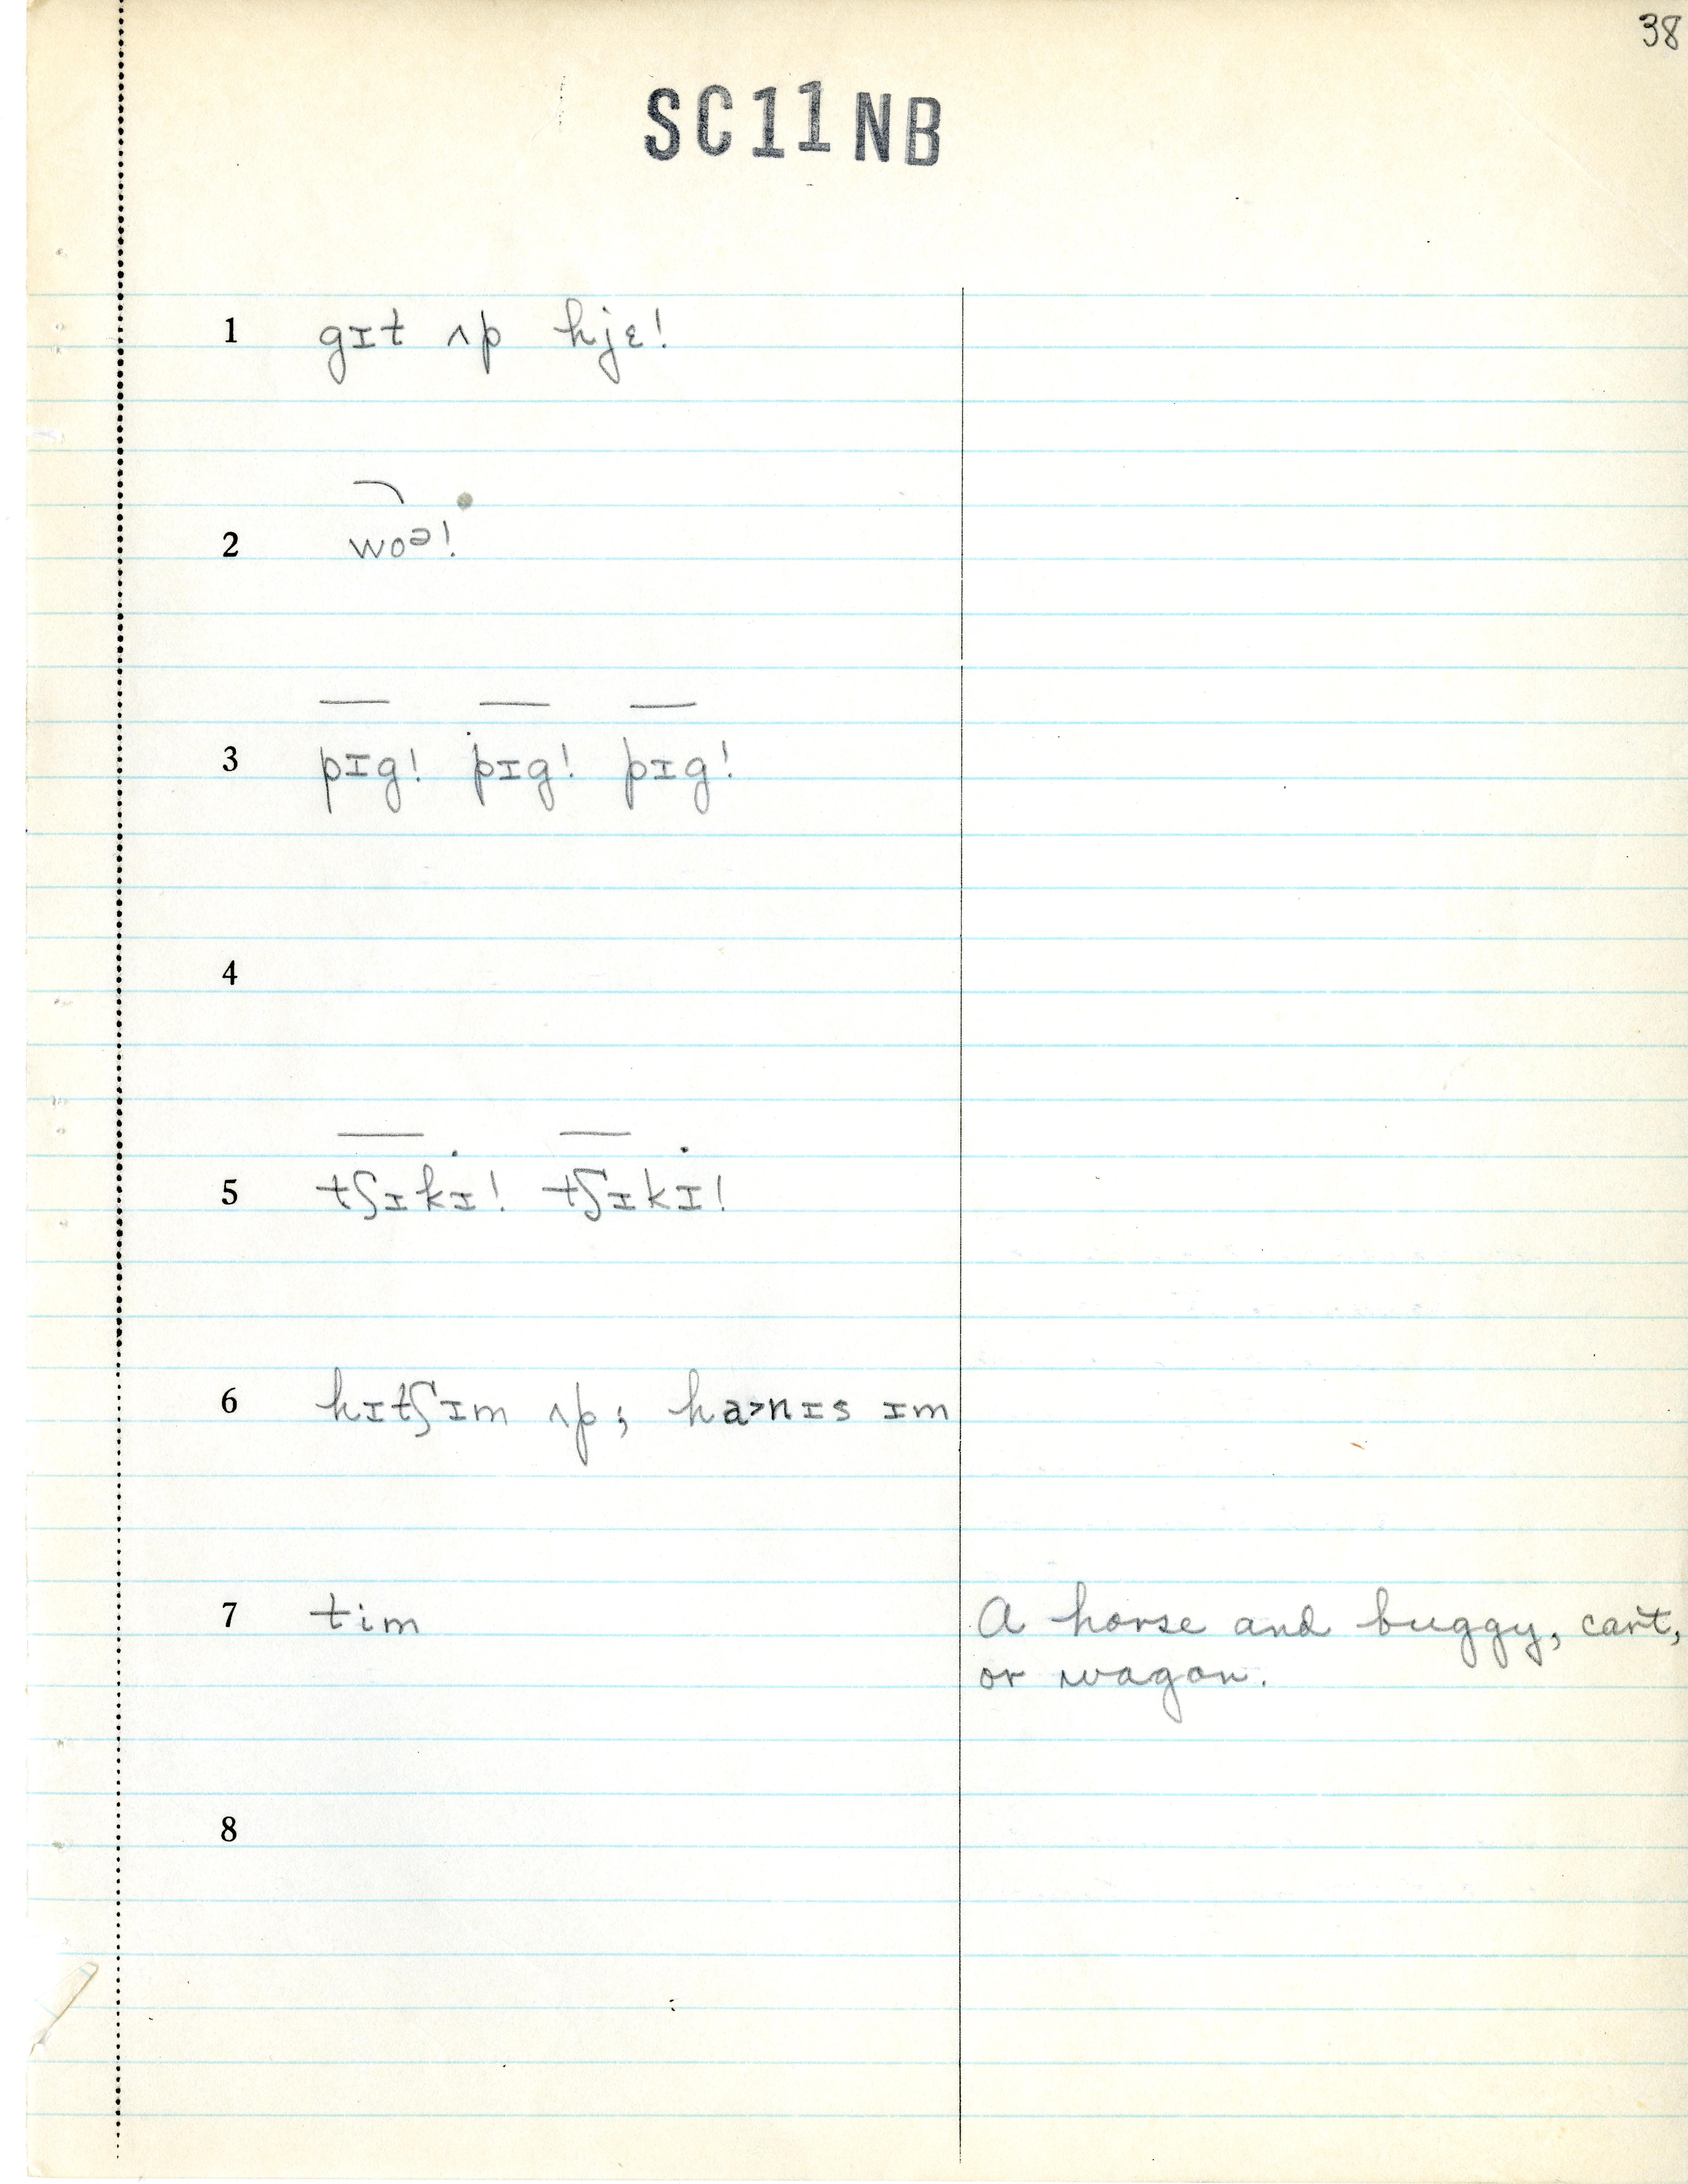 38
SC11NB
1 gɪt ʌp hjɛ!
2 woᵊ!
3 pɪg! pɪg! pɪg!
4
5 tʃɪkɪ! tʃɪkɪ!
6 hɪtʃ ɪm ʌp; ha>nɪs ɪm
7 tim A horse and buggy, cart,
or wagon.
8